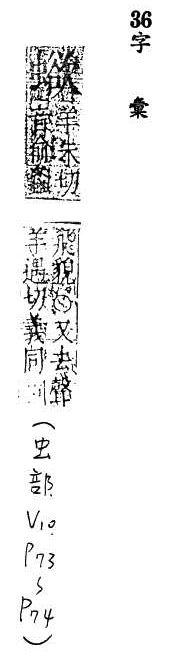 36 字 彙
羊朱切
飛貌 又去聲
羊遇切義同
(虫部 V10. P73~P74)